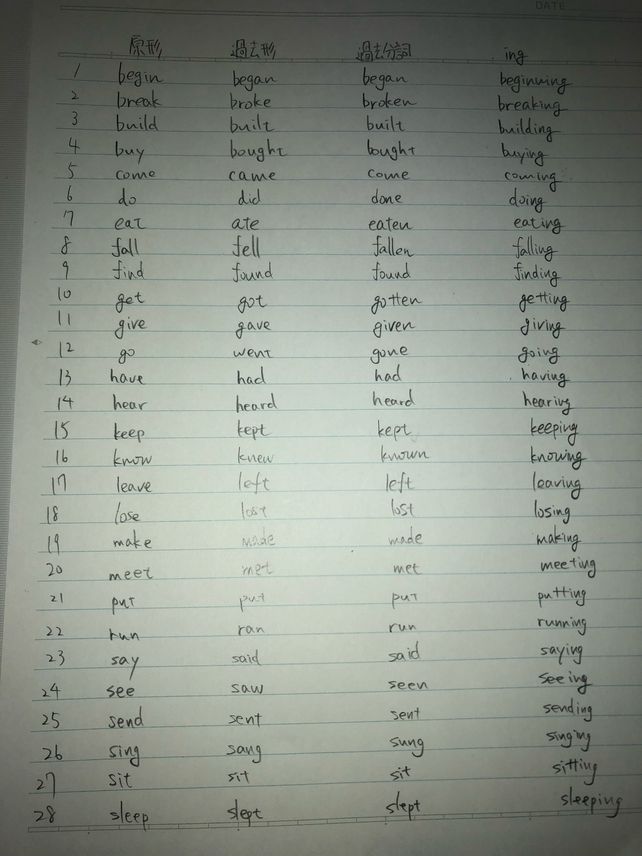 DATE
原形 過去形 過去分詞 ing
1 begin began began beginning
2 break broke broken breaking
3 build built built building
4 buy bought bought buying
5 come came come coming
6 do did done doing
7 eat ate eaten eating
8 fall fell fallen falling
9 find found found finding
10 get got gotten getting
11 give gave given giving
12 go went gone going
13 have had had having
14 hear heard heard hearing
15 keep kept kept keeping
16 know knew known knowing
17 leave left left leaving
18 lose lost lost losing
19 make made made making
20 meet met met meeting
21 put put put putting
22 run ran run running
23 say said said saying
24 see saw seen seeing
25 send sent sent sending
26 sing sang sung singing
27 sit sit sit sitting
28 sleep slept slept sleeping